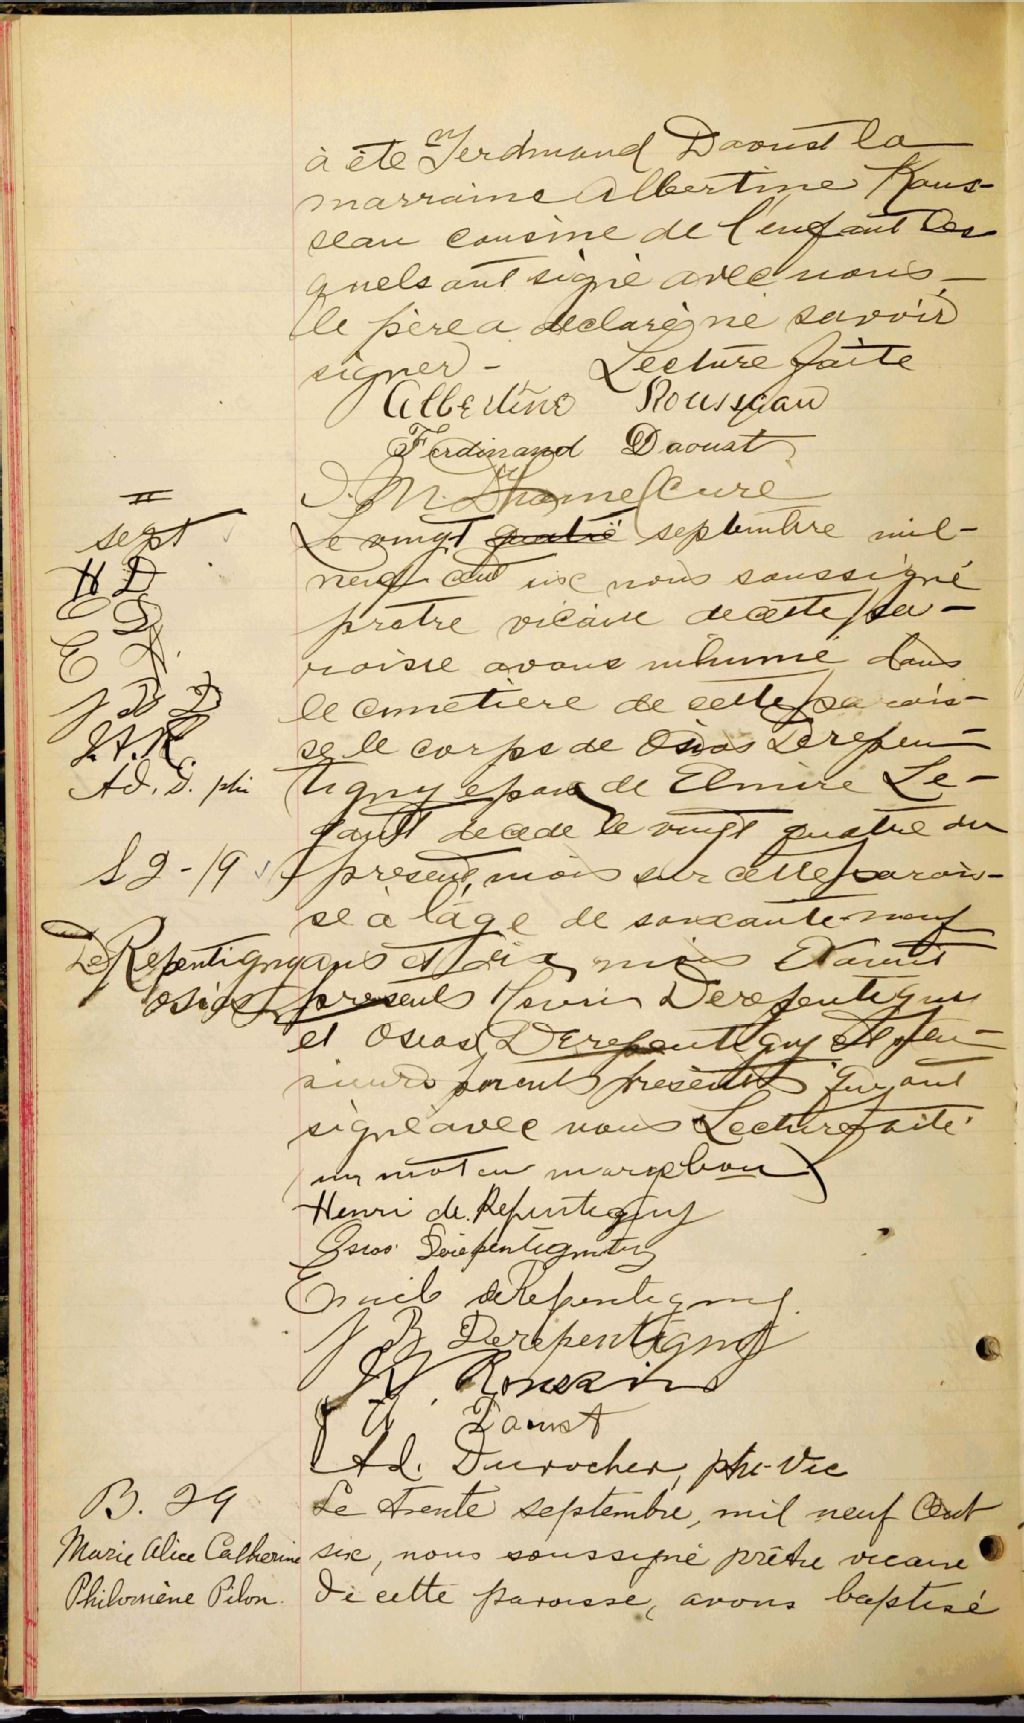 à été Ferdinand Daoust la
marraine Albertine Rous-
seau cousine de l'enfant les
quels ont signé avec nous_
le père a déclaré ne savoir
signer - Lecture faite
Albertine Rousseau
Ferdinand Daoust
J. M. Dhome Curé
II
sept
H D
O D
E
J B D
J. A. R.
Ad. D. ptre
Le vingt quatre septembre mil-
neuf cent six nous soussigné
prêtre vicaire de cette pa-
roisse avons inhumé dans
le cimetière de cette parois-
se le corps de Osias Derepen-
tigny époux de Elmire Le-
gault decede le vingt quatre du
S 2 - 19
présent mois sur cette parois-
se à l'âge de soixante-neuf
DeRepentigny
Osias
ans et dix mois Etaient
présents Henri Derepentigny
et Osias Derepentigny et plu-
sieurs furent présents qui ont
signé avec nous Lecture faite.
un mot en marge bon
Henri de Repentigny
Osias Derepentigny
Emile deRepentigny.
J B Derepentigny
Daoust
Ad. Durocher, ptre-vic
B. 29
Marie Alice Catherine
Philomène Pilon.
Le trente septembre, mil neuf cent
six, nous soussigné prêtre vicaire
de cette paroisse, avons baptisé